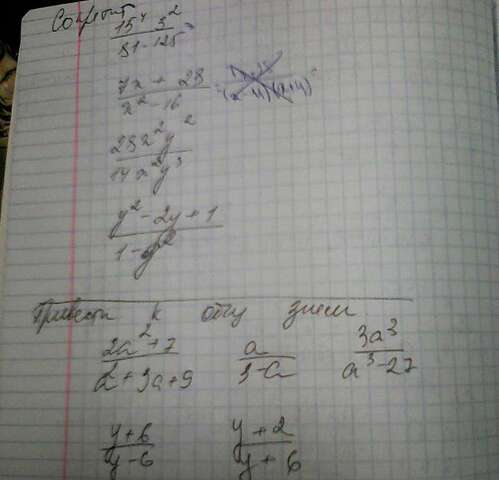 Сократит
15⁴ 3² / 81 - 125
7x + 28 / x² - 16 =
28x²y² / 14x²y³
y² - 2y + 1 / 1 - y²
Привести к общ знам
2a² + 7 / a² + 3a + 9 a / 3 - a 3a³ / a³ - 27
y + 6 / y - 6 y + 2 / y + 6